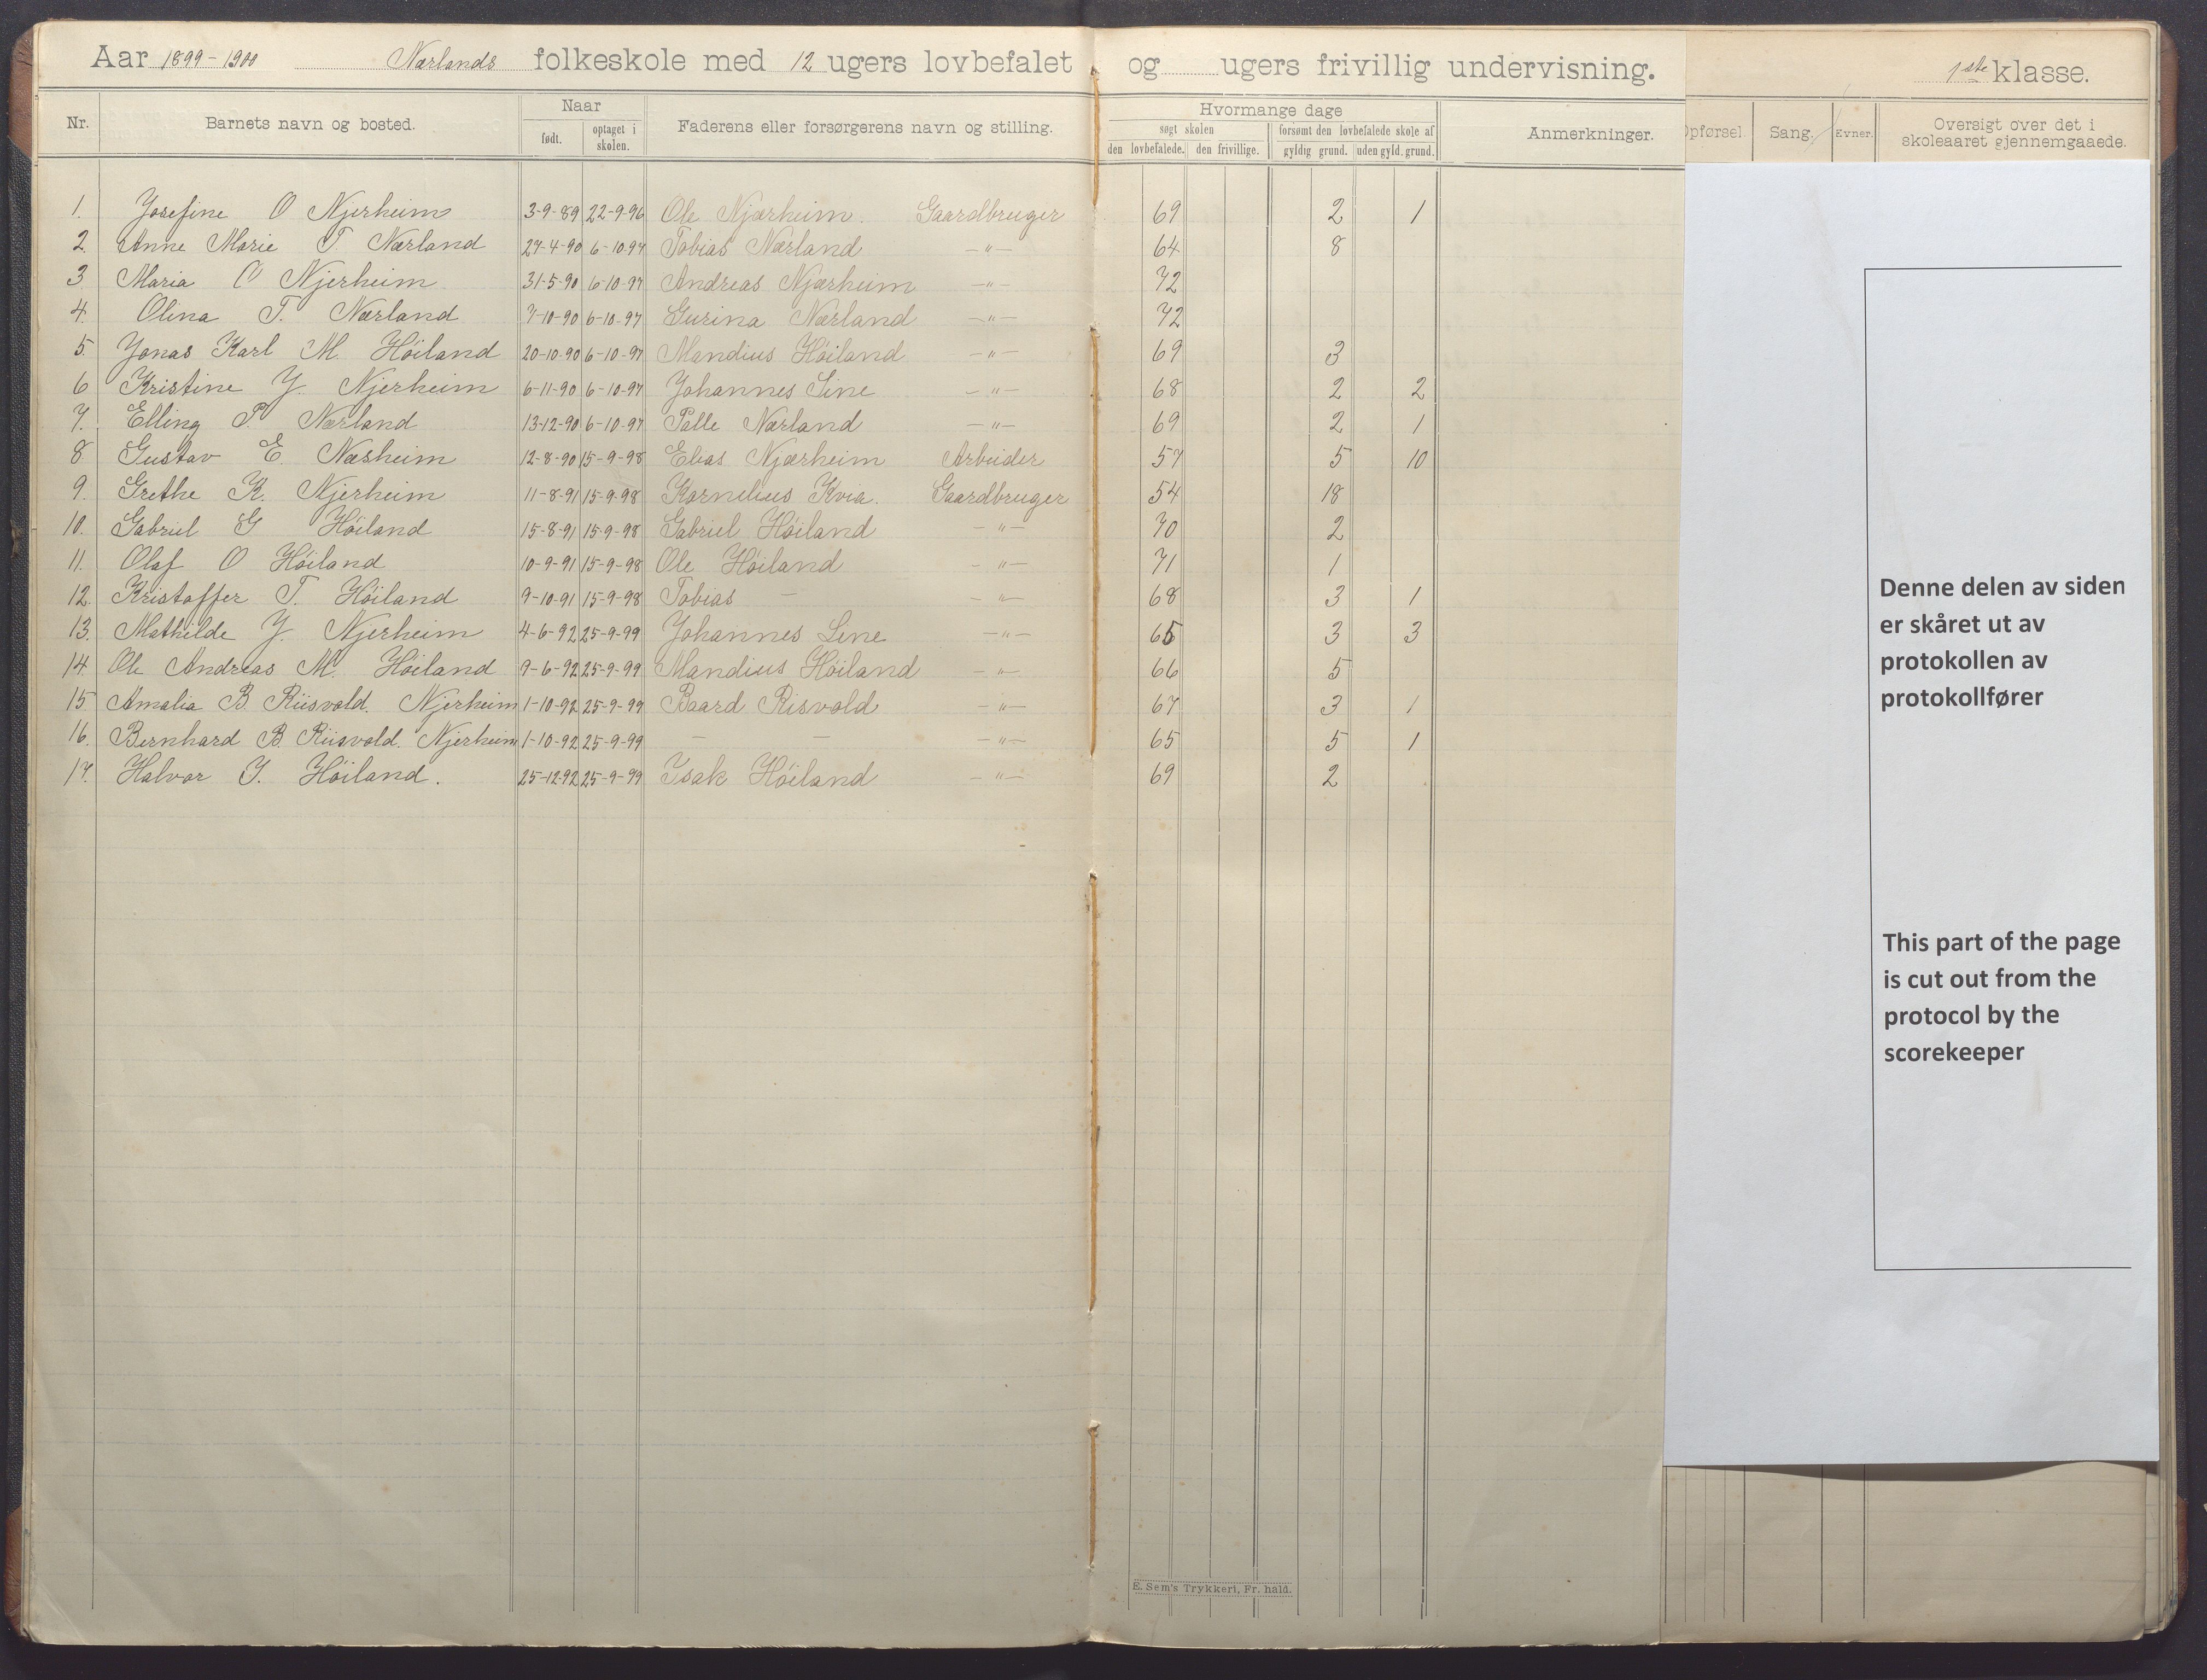 Aar 1899-1900 Nærlands folkeskole med 12 ugers lovbefalet og ugers frivillig undervisning. 1ste klasse.
Nr. Barnets navn og bosted. Naar Faderens eller forsørgerens navn og stilling. Hvormange dage Anmerkninger. Opførsel. Sang. Evner. Oversigt over det i skoleaaret gjennemgaaede.
født. optaget i skolen. søgt skolen forsømt den lovbefalede skole af
den lovbefalede. den frivillige. gyldig grund. uden gyld. grund.
1. Josefine O Njerheim 3-9-89 22-9-96 Ole Njærheim. Gaardbruger 69 2 1
2. Anne Marie T. Nærland 27-4-90 6-10-97 Tobias Nærland -"- 64 8
3. Maria O Njerheim 31-5-90 6-10-97 Andreas Njærheim -"- 72
4. Olina T. Nærland 7-10-90 6-10-97 Gurina Nærland -"- 72
5. Jonas Karl M. Høiland 20-10-90 6-10-97 Mandius Høiland -"- 69 3
6 Kristine J. Njerheim 6-11-90 6-10-97 Johannes Line -"- 68 2 2
7. Elling P. Nærland 13-12-90 6-10-97 Palle Nærland -"- 69 2 1
8 Gustav E. Næsheim 12-8-90 15-9-98 Elias Njærheim Arbeider 57 5 10
9. Grethe K. Njerheim 11-8-91 15-9-98 Kornelius Kvia. Gaardbruger 54 18
10. Gabriel G Høiland 15-8-91 15-9-98 Gabriel Høiland -"- 70 2
11. Olaf O Høiland 10-9-91 15-9-98 Ole Høiland -"- 71 1
12. Kristoffer T. Høiland 9-10-91 15-9-98 Tobias - -"- 68 3 1
13. Mathilde J. Njerheim 4-6-92 25-9-99 Johannes Line -"- 65 3 3
14. Ole Andreas M. Høiland 9-6-92 25-9-99 Mandius Høiland -"- 66 5
15. Amalia B. Riisvold. Njerheim 1-10-92 25-9-99 Baard Risvold -"- 67 3 1
16. Bernhard B. Riisvold. Njerheim 1-10-92 25-9-99 - - -"- 65 5 1
17. Halvor I. Høiland. 25-12-92 25-9-99 Isak Høiland -"- 69 2
Denne delen av siden
er skåret ut av
protokollen av
protokollfører
This part of the page
is cut out from the
protocol by the
scorekeeper
E. Sem's Trykkeri, Fr. hald.